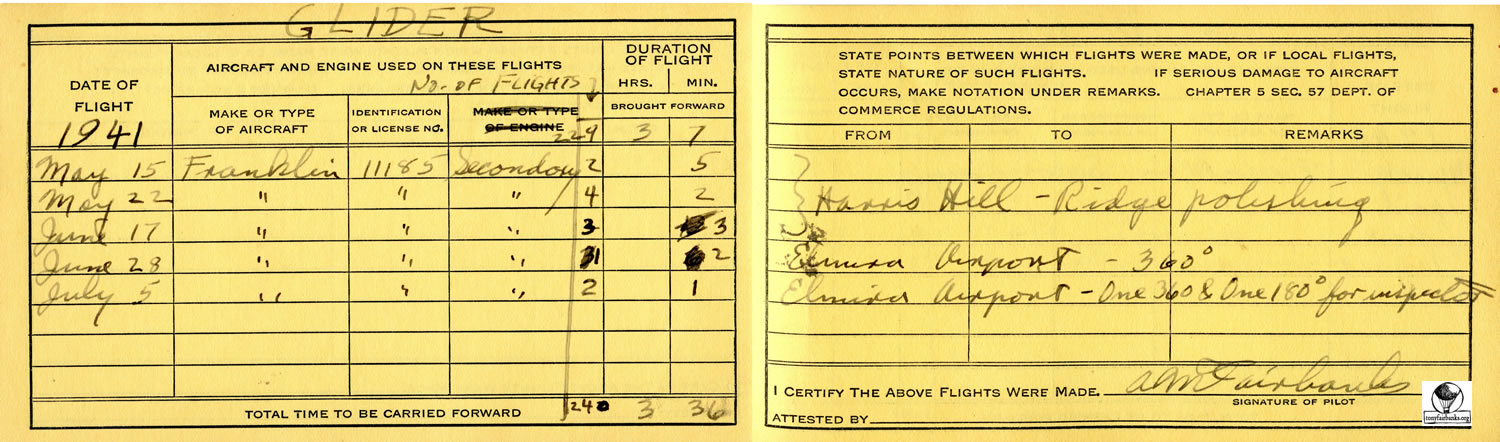 GLIDER
DATE OF FLIGHT
1941
AIRCRAFT AND ENGINE USED ON THESE FLIGHTS
No. OF FLIGHTS
DURATION OF FLIGHT
HRS. MIN.
MAKE OR TYPE OF AIRCRAFT
IDENTIFICATION OR LICENSE NO.
MAKE OR TYPE OF ENGINE
BROUGHT FORWARD
229 3 7
May 15 Franklin 11185 Secondary 2 5
May 22 " " " 4 2
June 17 " " " 3 3
June 28 " " " 1 2
July 5 " " " 2 1
TOTAL TIME TO BE CARRIED FORWARD 240 3 36
STATE POINTS BETWEEN WHICH FLIGHTS WERE MADE, OR IF LOCAL FLIGHTS,
STATE NATURE OF SUCH FLIGHTS. IF SERIOUS DAMAGE TO AIRCRAFT
OCCURS, MAKE NOTATION UNDER REMARKS. CHAPTER 5 SEC. 57 DEPT. OF
COMMERCE REGULATIONS.
FROM TO REMARKS
Harris Hill - Ridge polishing
Elmira Airport - 360°
Elmira Airport - One 360 & One 180° for inspector
I CERTIFY THE ABOVE FLIGHTS WERE MADE. A M Fairbanks
SIGNATURE OF PILOT
ATTESTED BY
tonyfairbanks.org